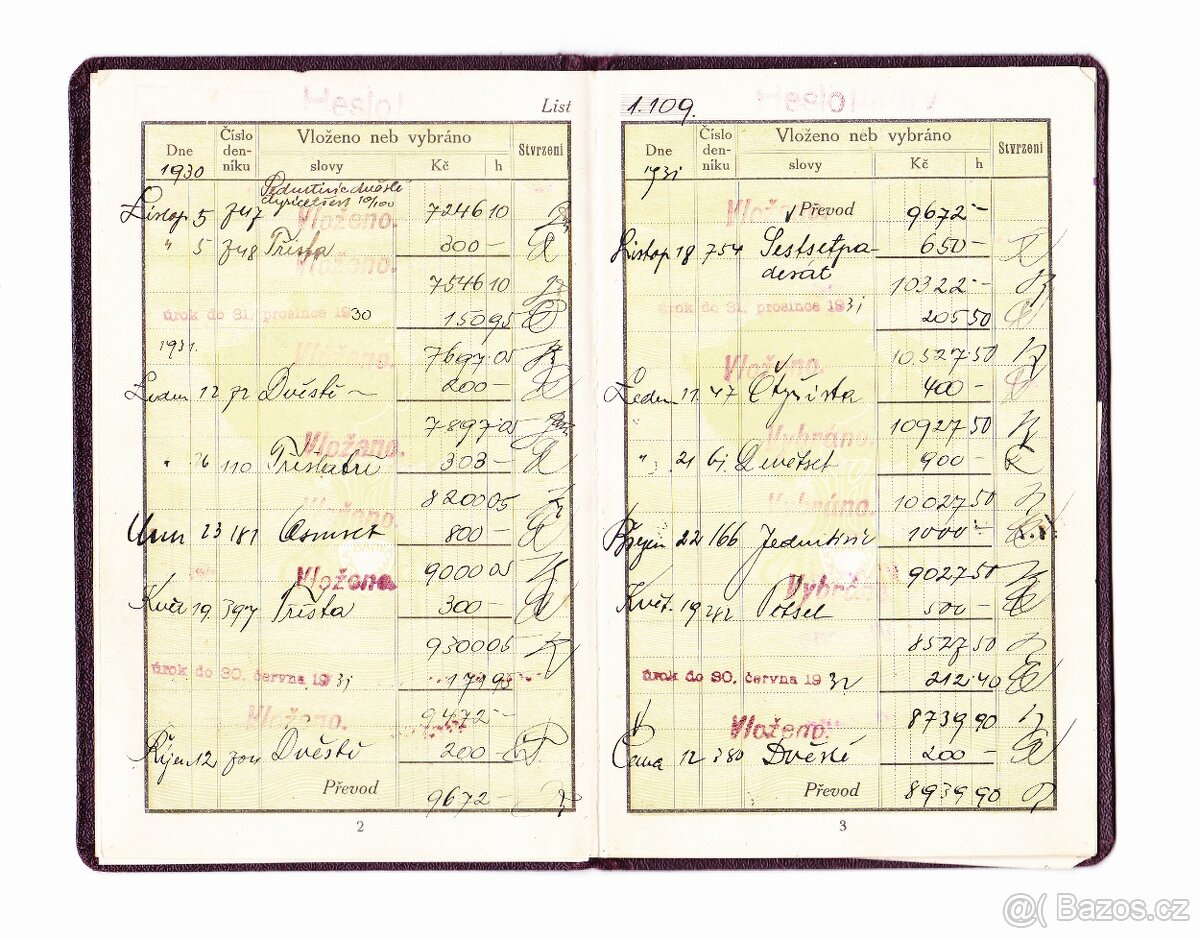 List
Dne
Číslo
den-
níku
Vloženo neb vybráno
slovy
Kč
h
Stvrzení
1930
Sedmtisícdvěstě
čtyřicetšest 10/100
Listop 5 747 Vloženo. 7246 10
" 5 748 Třista 300 -
Vloženo.
7546 10
úrok do 31. prosince 1930 150 95
1931. Vloženo. 7697 05
Leden 12 72 Dvěstě 200 -
7897 05
Vloženo.
" 26 110 Třistatři 303 -
Vloženo. 8200 05
Únor 23 181 Osmset 800 -
Vloženo. 9000 05
Květ 19. 397 Třista 300 -
9300 05
úrok do 30. června 1931 171 95
Vloženo. 9472 -
Říjen 12 704 Dvěstě 200 -
Převod 9672 -
2
1.109.
Dne
Číslo
den-
níku
Vloženo neb vybráno
slovy
Kč
h
Stvrzení
1931
Vloženo. Převod 9672 -
Listop 18 754 Šestsetpa-
desát 650 -
10322 -
úrok do 31. prosince 1931 205 50
Vloženo. 10.527 50
Leden 11 47 Čtyřista 400 -
Vybráno. 10927 50
" 21 61 Devětset 900 -
Vybráno. 10027 50
Březen 22 166 Jedentisíc 1000 -
Vybráno 9027 50
Květ. 19 282 Pětset 500 -
8527 50
úrok do 30. června 1932 212 40
Vloženo. 8739 90
12 380 Dvěstě 200 -
Převod 8939 90
3
@( Bazos.cz